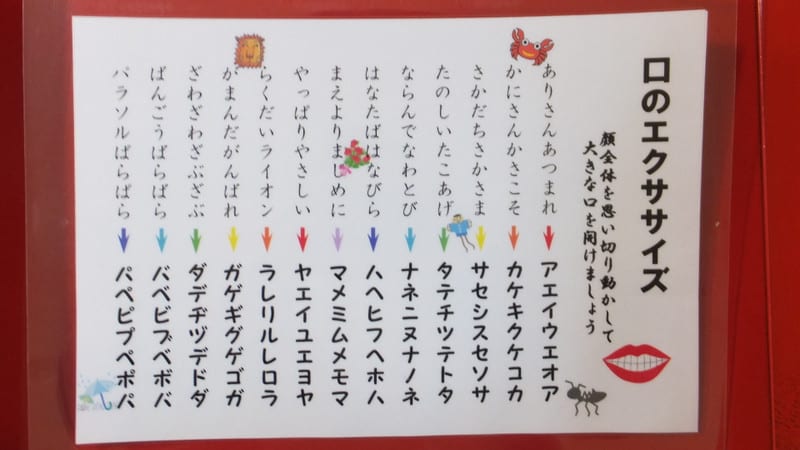 口のエクササイズ
顔全体を思い切り動かして
大きな口を開けましょう
ありさんあつまれ → アエイウエオア
かにさんかさこそ → カケキクケコカ
さかだちさかさま → サセシスセソサ
たのしいたこあげ → タテチツテトタ
ならんでなわとび → ナネニヌナノネ
はなたばはなびら → ハヘヒフヘホハ
まえよりまじめに → マメミムメモマ
やっぱりやさしい → ヤエイユエヨヤ
らくだいライオン → ラレリルレロラ
がまんだがんばれ → ガゲギグゲゴガ
ざわざわざぶざぶ → ダデヂヅデドダ
ばんごうばらばら → バベビブベボバ
パラソルぱらぱら → パペピプペポパ